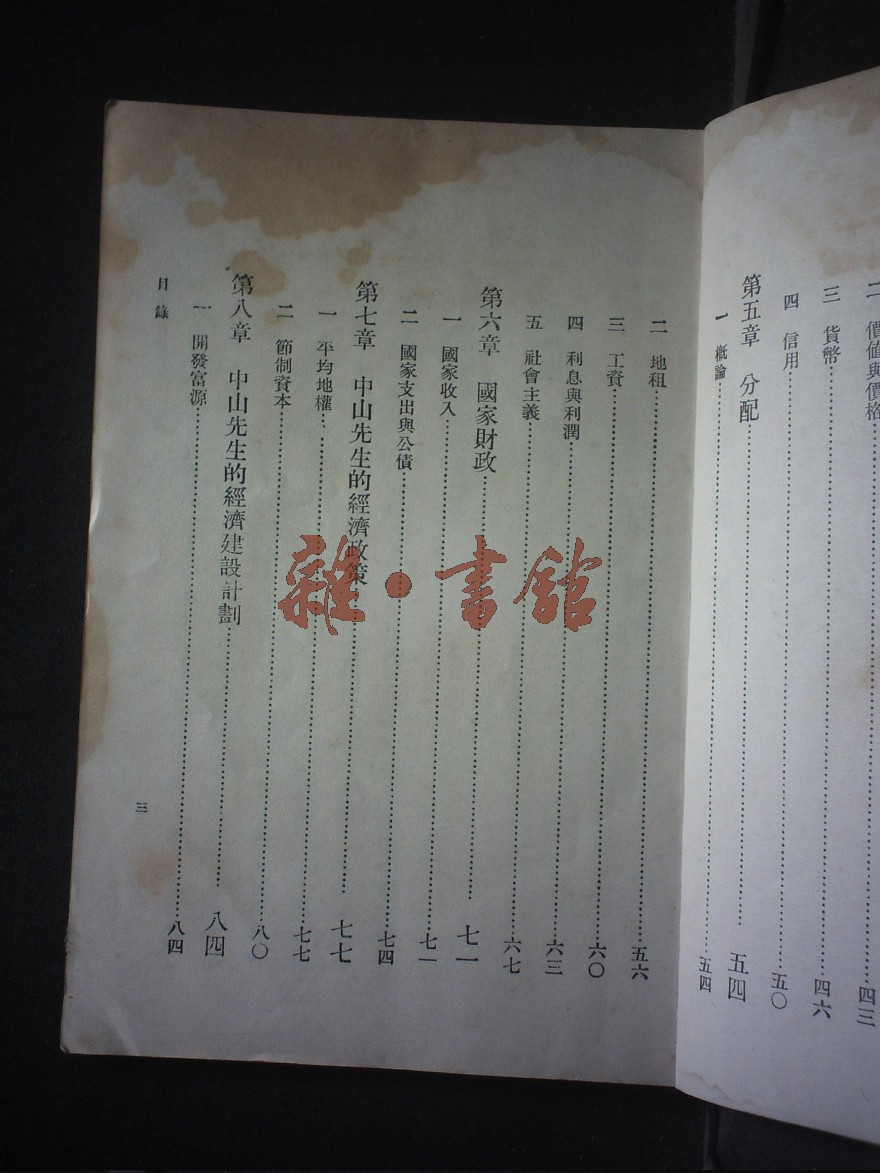 二 價值與價格 四三
三 貨幣 四六
四 信用 五〇
第五章 分配 五四
一 概論 五四
二 地租 五六
三 工資 六〇
四 利息與利潤 六三
五 社會主義 六七
第六章 國家財政 七一
一 國家收入 七一
二 國家支出與公債 七四
第七章 中山先生的經濟政策 七七
一 平均地權 七七
二 節制資本 八〇
第八章 中山先生的經濟建設計劃 八四
一 開發富源 八四
目錄
三
雜·書館